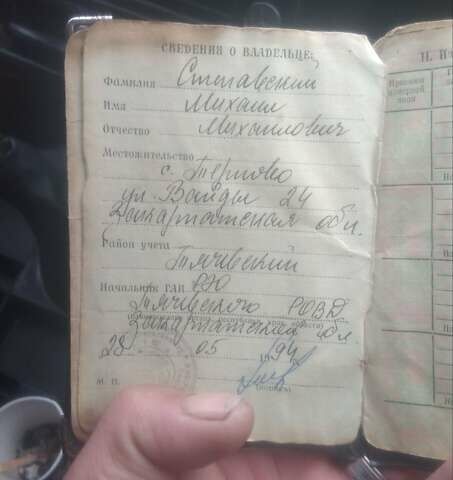 СВЕДЕНИЯ О ВЛАДЕЛЬЦЕ:
Фамилия Стегавский
Имя Михаил
Отчество Михаилович
Местожительство
с. Терново
ул. Вайды 24
Закарпатская обл.
Район учета
Тячевский
Начальник ГАИ РЭО
Тячевского РОВД
Закарпатской обл
28 05 1994
М. П. (подпись)
II.